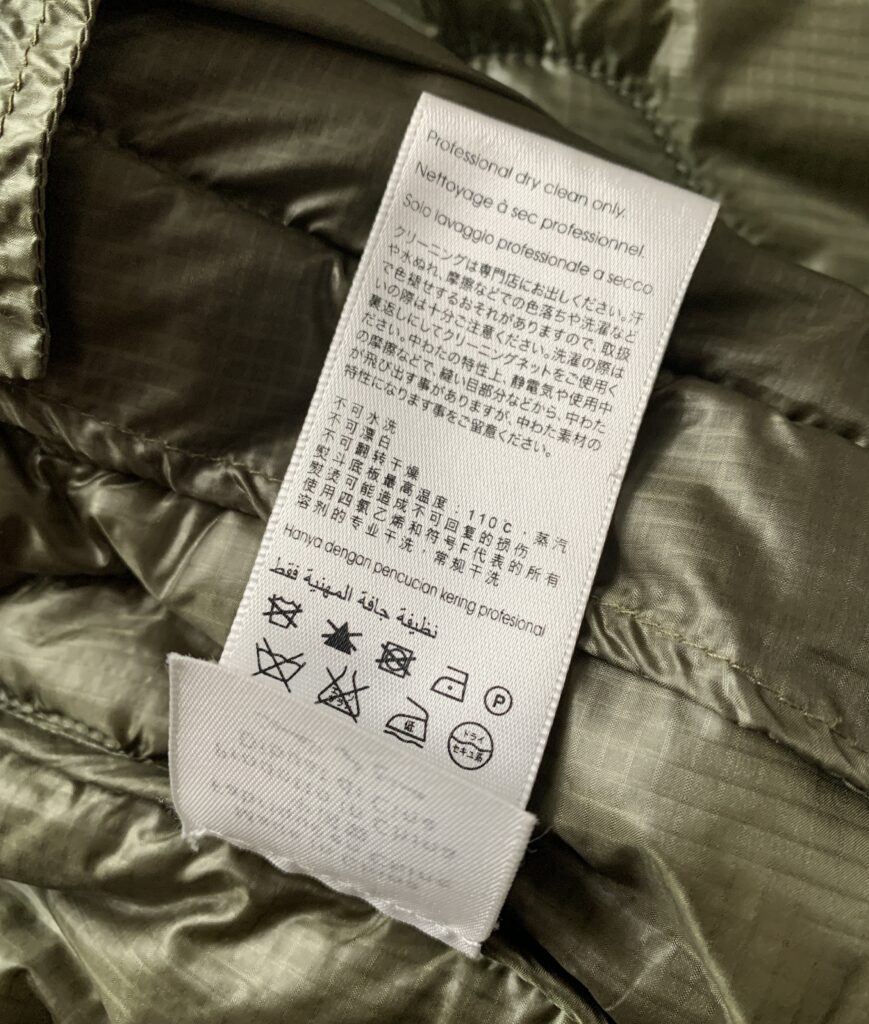 Professional dry clean only.
Nettoyage à sec professionnel.
Solo lavaggio professionale a secco
クリーニングは専門店にお出しください。汗
や水ぬれ、摩擦などでの色落ちや洗濯など
で色褪せするおそれがありますので、取扱
いの際は十分ご注意ください。洗濯の際は
裏返しにしてクリーニングネットをご使用く
ださい。中わたの特性上、静電気や使用中
の摩擦などで、縫い目部分などから、中わた
が飛び出す事がありますが、中わた素材の
特性になります事をご留意ください。
不可水洗
不可漂白
不可翻转干燥
熨斗底板最高温度：110C，蒸汽
熨烫可能造成不可回复的损伤
使用四氯乙烯和符号F代表的所有
溶剂的专业干洗，常规干洗
Hanya dengan pencucian kering profesional
نظيفة جافة المهنية فقط
P
低
ドライ
セキユ系